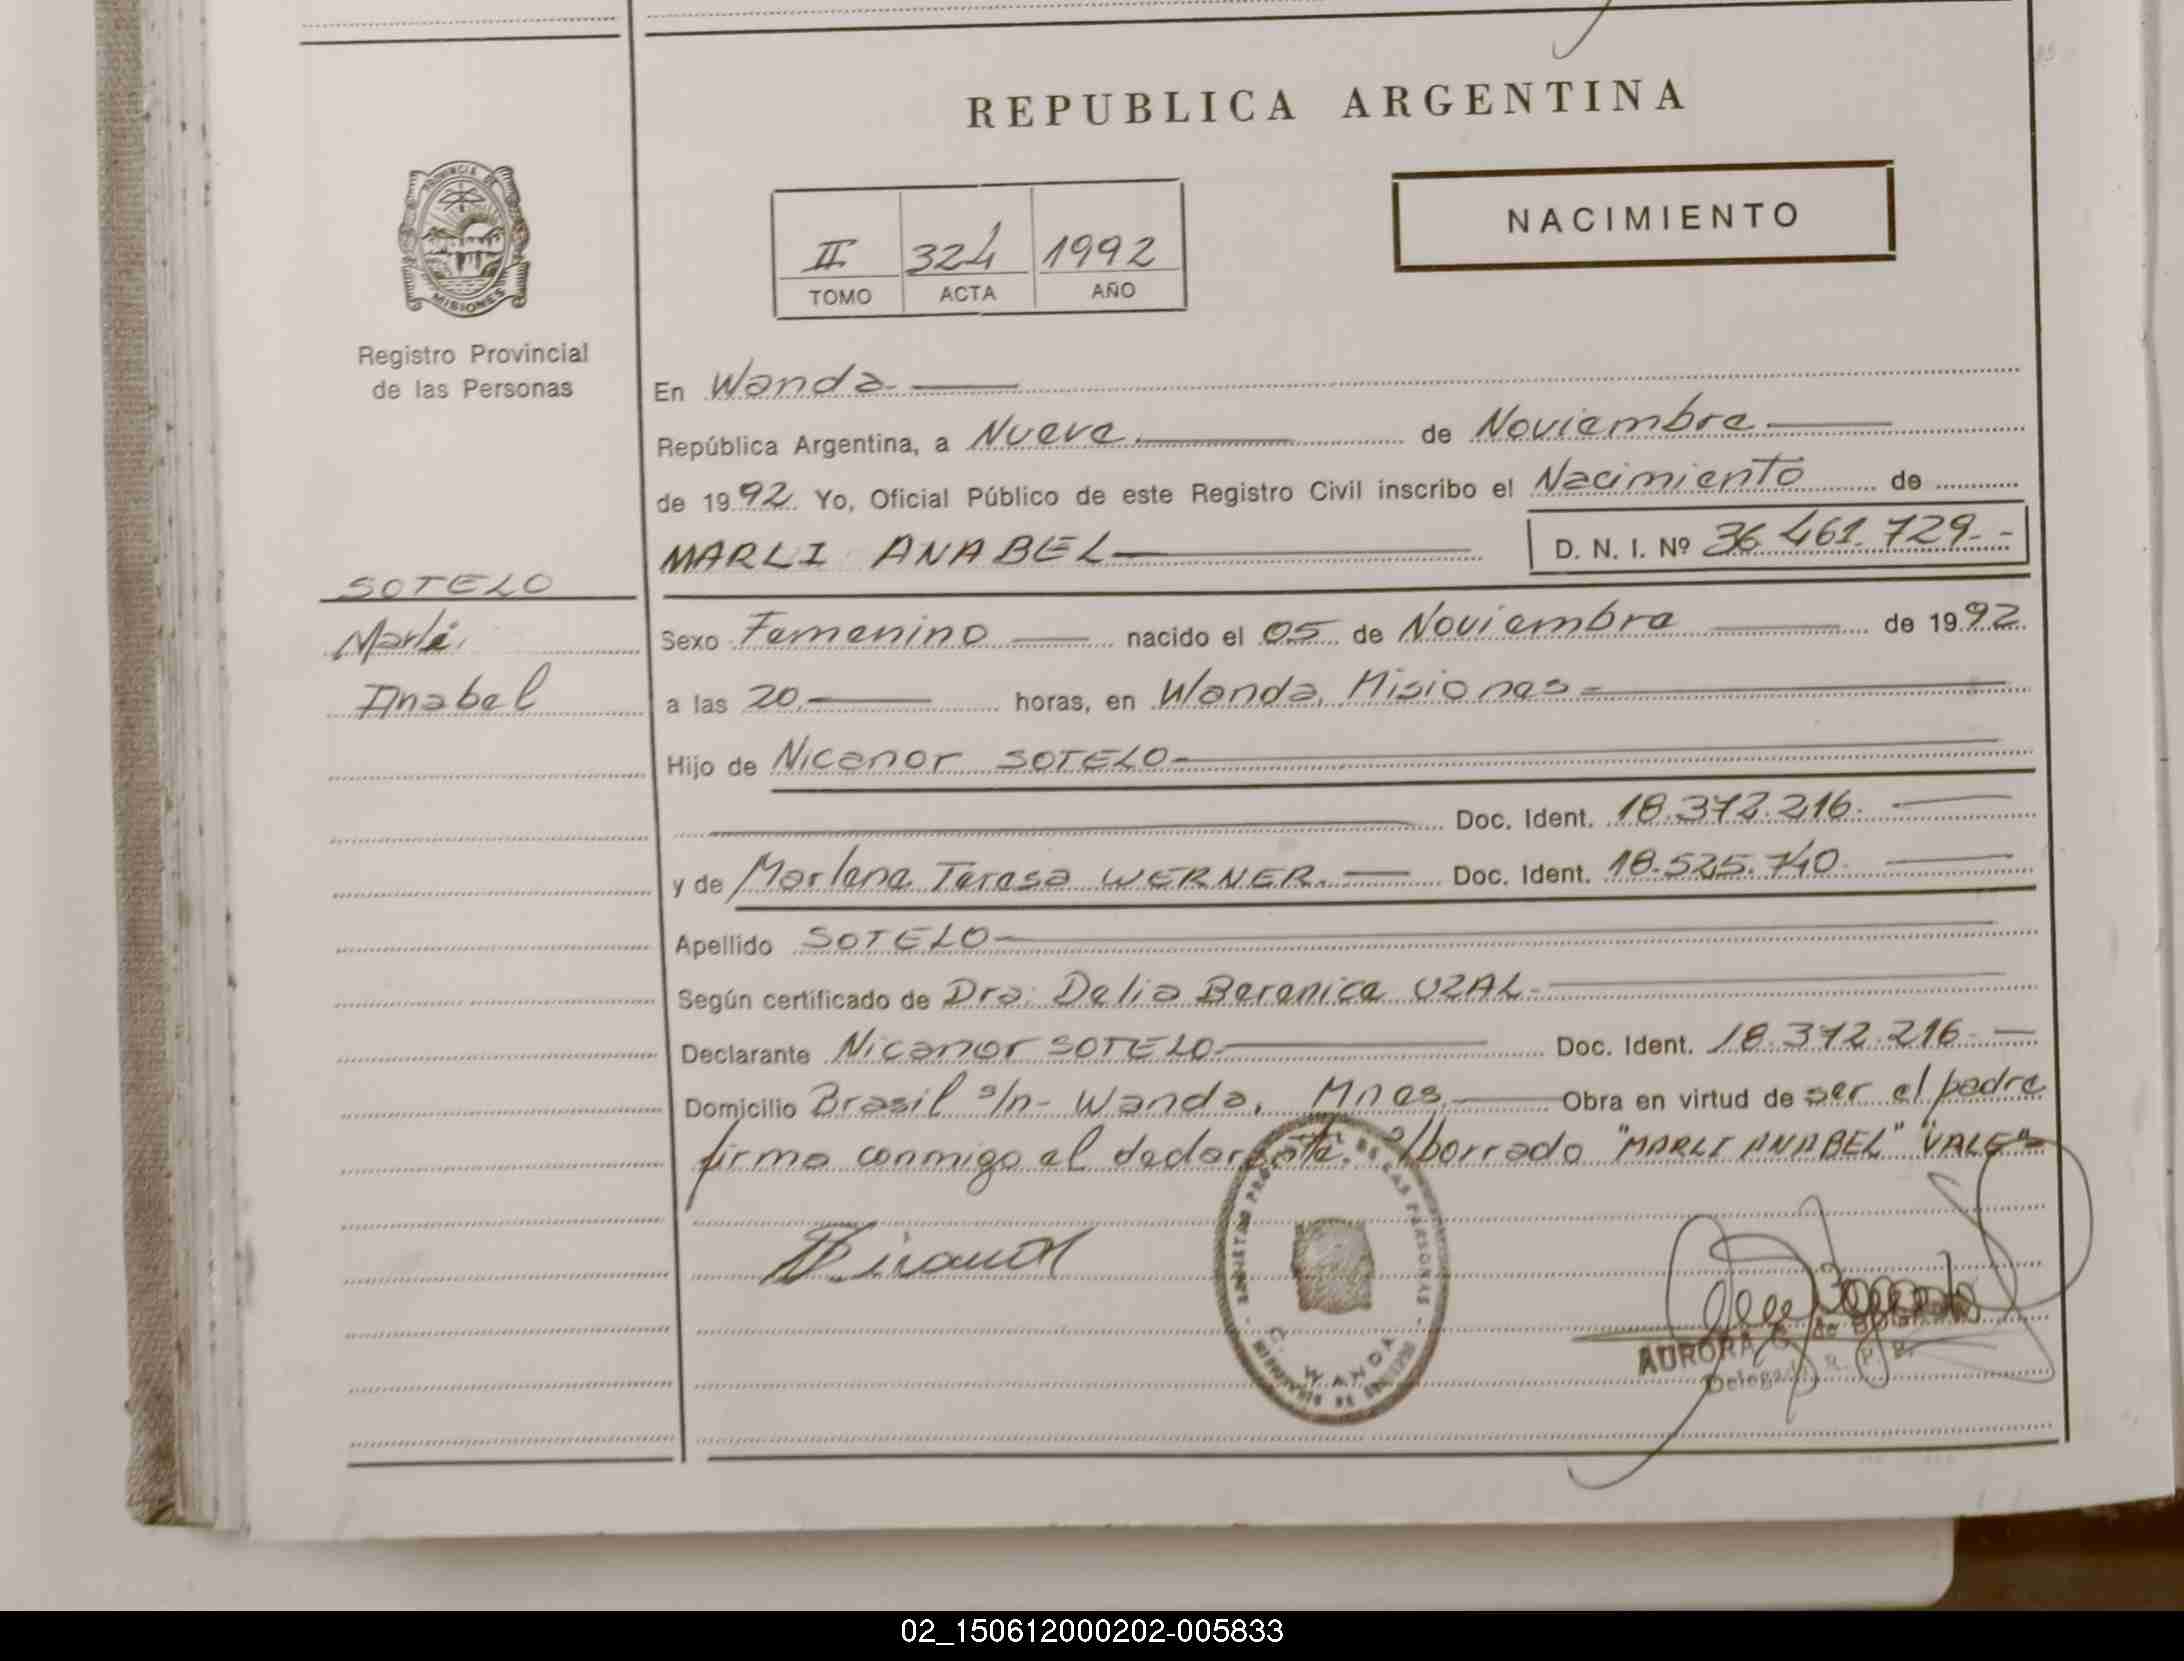 REPUBLICA ARGENTINA
PROVINCIA DE
MISIONES
Registro Provincial
de las Personas
NACIMIENTO
II 324 1992
TOMO ACTA AÑO
En Wanda
República Argentina, a Nueve de Noviembre
de 1992. Yo, Oficial Público de este Registro Civil inscribo el Nacimiento de
MARLI ANABEL D. N. I. Nº 36 461.729.-
SOTELO
Marli
Anabel
Sexo Femenino nacido el 05 de Noviembre de 1992.
a las 20 horas, en Wanda, Misiones
Hijo de Nicanor SOTELO
Doc. Ident. 18.372.216.
y de Marlene Teresa WERNER. Doc. Ident. 18.525.740.
Apellido SOTELO
Según certificado de Dra. Delia Berenice UZAL
Declarante Nicanor SOTELO Doc. Ident. 18.372.216.
Domicilio Brasil s/n - Wanda, Mnes. Obra en virtud de ser el padre
firma conmigo el declarante. S/borrado "MARLI ANABEL" "VALE"
DE LAS PERSONAS
WANDA
AURORA G. de
Delegada R. P. P.
02_150612000202-005833